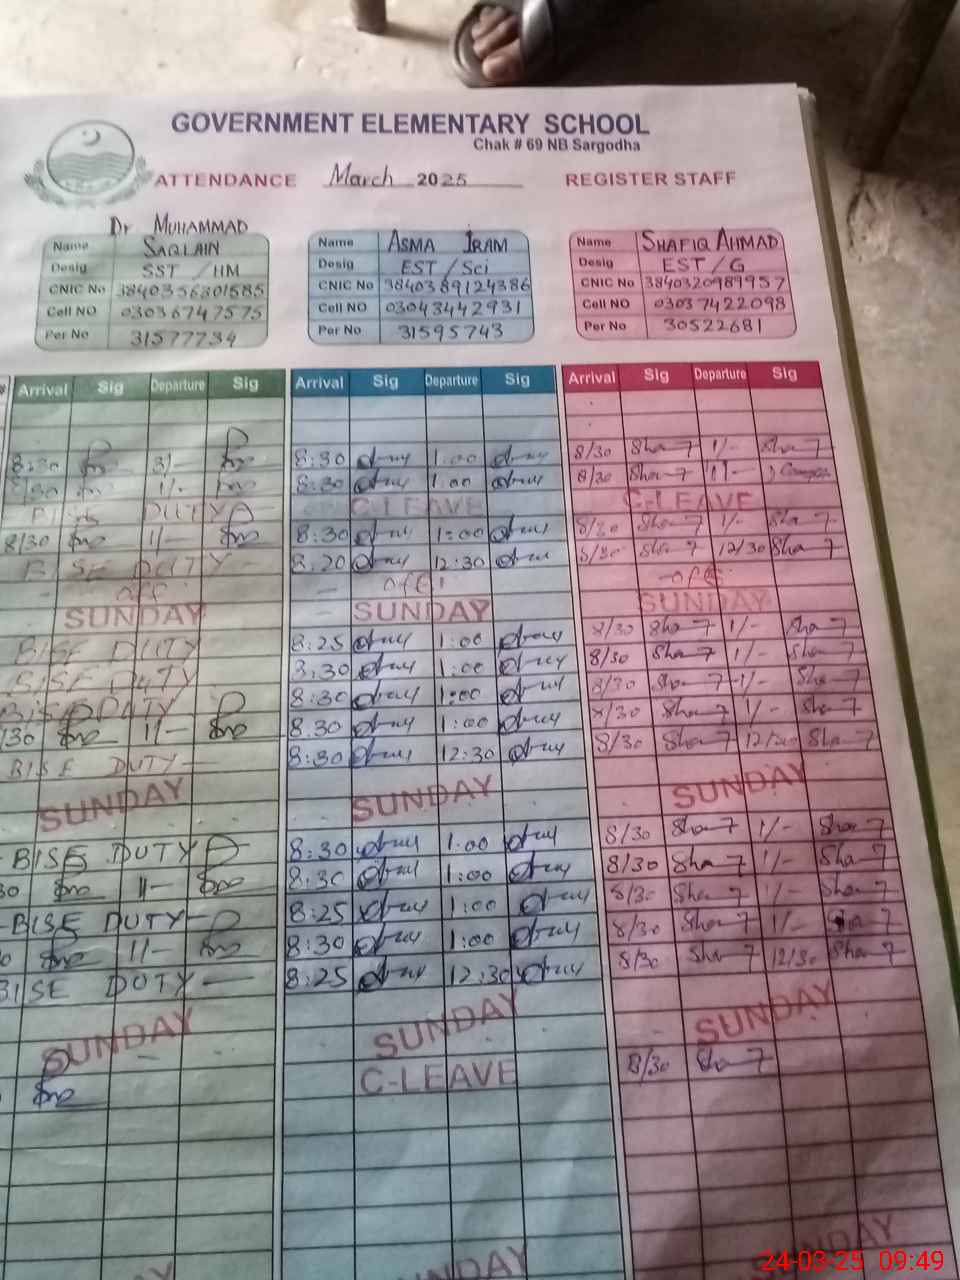 GOVERNMENT ELEMENTARY SCHOOL
Chak # 69 NB Sargodha
ATTENDANCE March 2025 REGISTER STAFF
Dr MUHAMMAD
Name SAQLAIN Name ASMA IRAM Name SHAFIQ AHMAD
Desig SST / HM Desig EST / Sci Desig EST / G
CNIC No 3840356301585 CNIC No 3840389124386 CNIC No 3840320989957
Cell NO 03036747575 Cell NO 03043442931 Cell NO 03037422098
Per No 31577734 Per No 31595743 Per No 30522681
Arrival Sig Departure Sig Arrival Sig Departure Sig Arrival Sig Departure Sig
8:30 3/- 8:30 1:00 8/30 Sha 7 1/- Sha 7
8:30 1/- 8:30 1:00 8/30 Sha 7 1/-
BISE DUTY C-LEAVE C-LEAVE
8/30 1/- 8:30 1:00 8/30 Sha 7 1/- Sha 7
BISE DUTY 8:20 12:30 8/30 Sha 7 12/30 Sha 7
off off off
SUNDAY SUNDAY SUNDAY
BISE DUTY 8:25 1:00 8/30 Sha 7 1/- Sha 7
BISE DUTY 8:30 1:00 8/30 Sha 7 1/- Sha 7
BISE DUTY 8:30 1:00 8/30 Sha 7 1/- Sha 7
/30 1/- 8:30 1:00 8/30 Sha 7 1/- Sha 7
BISE DUTY 8:30 12:30 8/30 Sha 7 12/30 Sha 7
SUNDAY SUNDAY SUNDAY
BISE DUTY 8:30 1:00 8/30 Sha 7 1/- Sha 7
30 1/- 8:30 1:00 8/30 Sha 7 1/- Sha 7
BISE DUTY 8:25 1:00 8/30 Sha 7 1/- Sha 7
1/- 8:30 1:00 8/30 Sha 7 1/- Sha 7
BISE DUTY 8:25 12:30 8/30 Sha 7 12/30 Sha 7
SUNDAY SUNDAY SUNDAY
C-LEAVE 8/30 Sha 7
SUNDAY
24-03-25 09:49